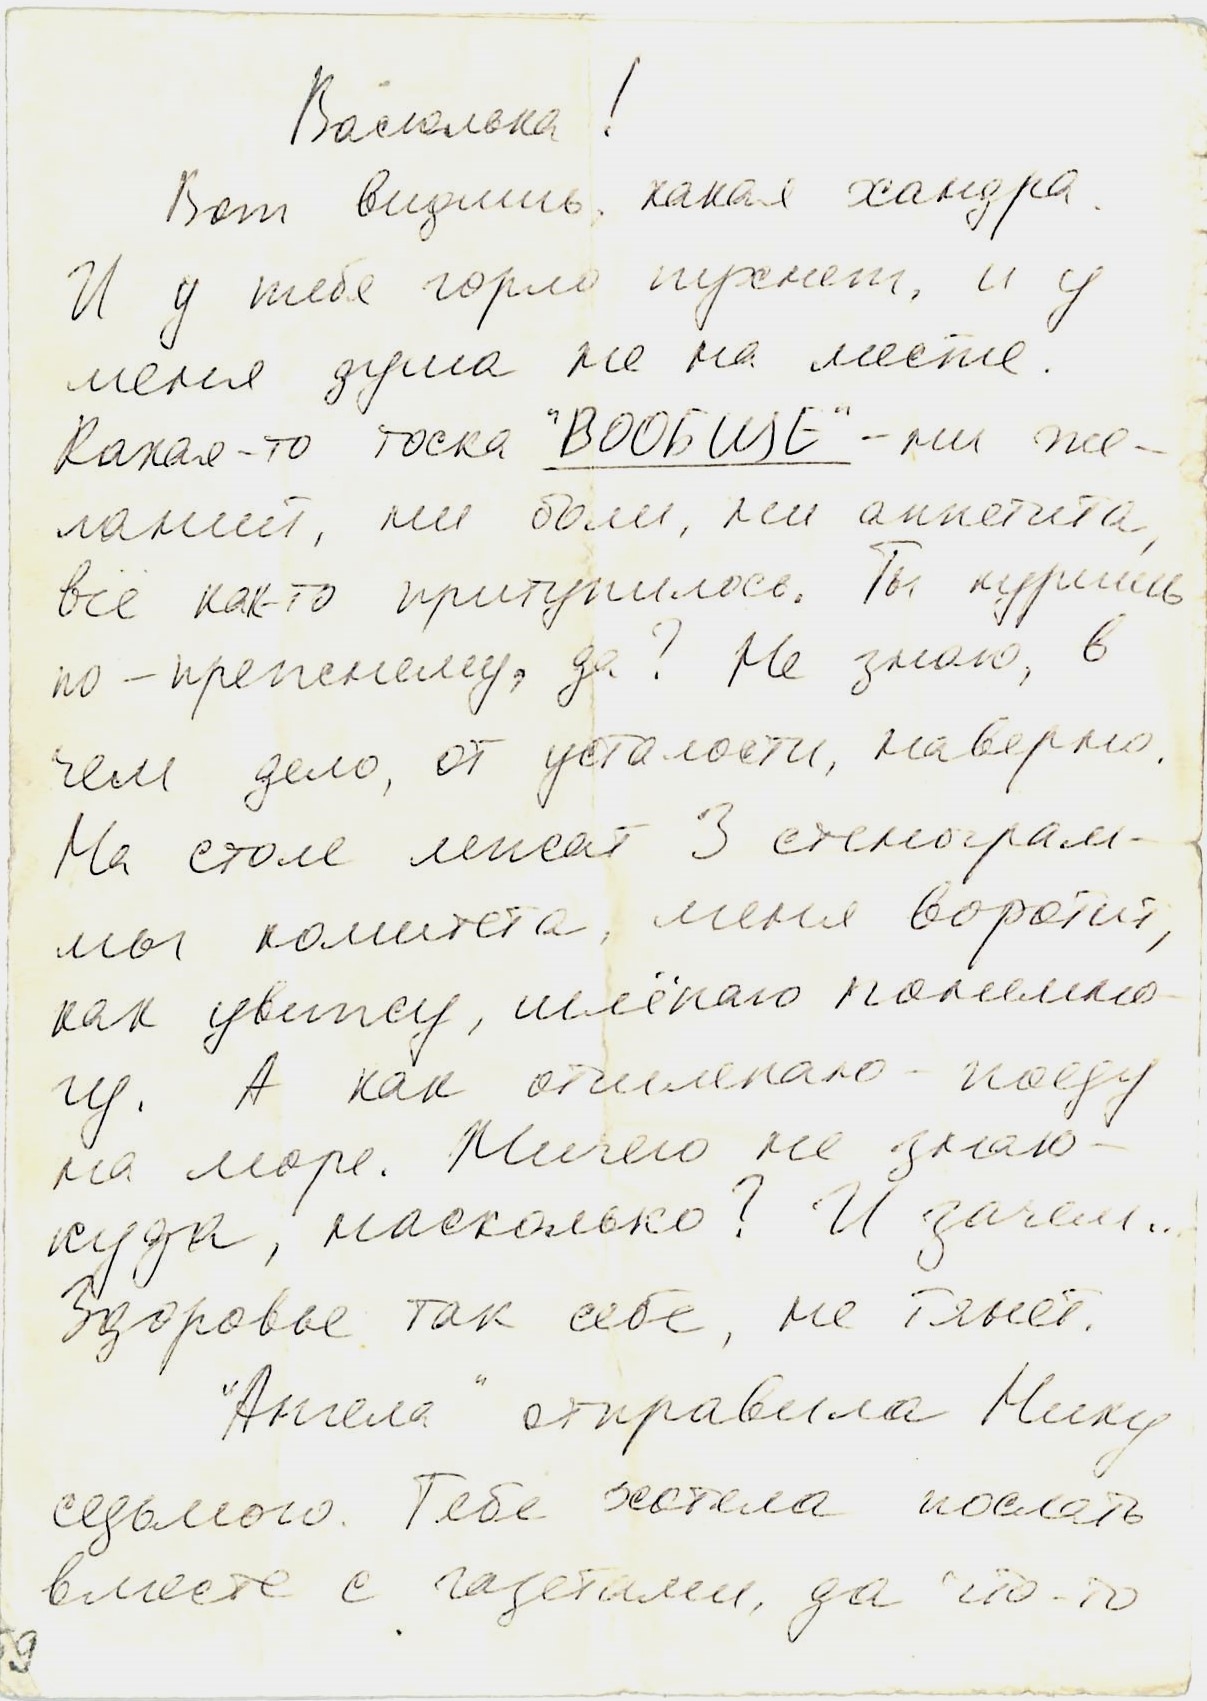 Васюлька!
Вот видишь, какая хандра.
И у тебя горло пухнет, и у
меня душа не на месте.
Какая-то тоска "ВООБЩЕ" - ни же-
ланий, ни боли, ни аппетита,
всё как-то притупилось. Ты куришь
по-прежнему, да? Не знаю, в
чем дело, от усталости, наверно.
На столе лежат 3 стенограм-
мы комитета, меня воротит,
как увижу, шлёпаю понемно-
гу. А как отшлепаю - поеду
на море. Ничего не знаю -
куда, насколько? И зачем...
Здоровье так себе, не тянет.
"Ангела" отправила Нику
седьмого. Тебе хотела послать
вместе с газетами, да что-то
59